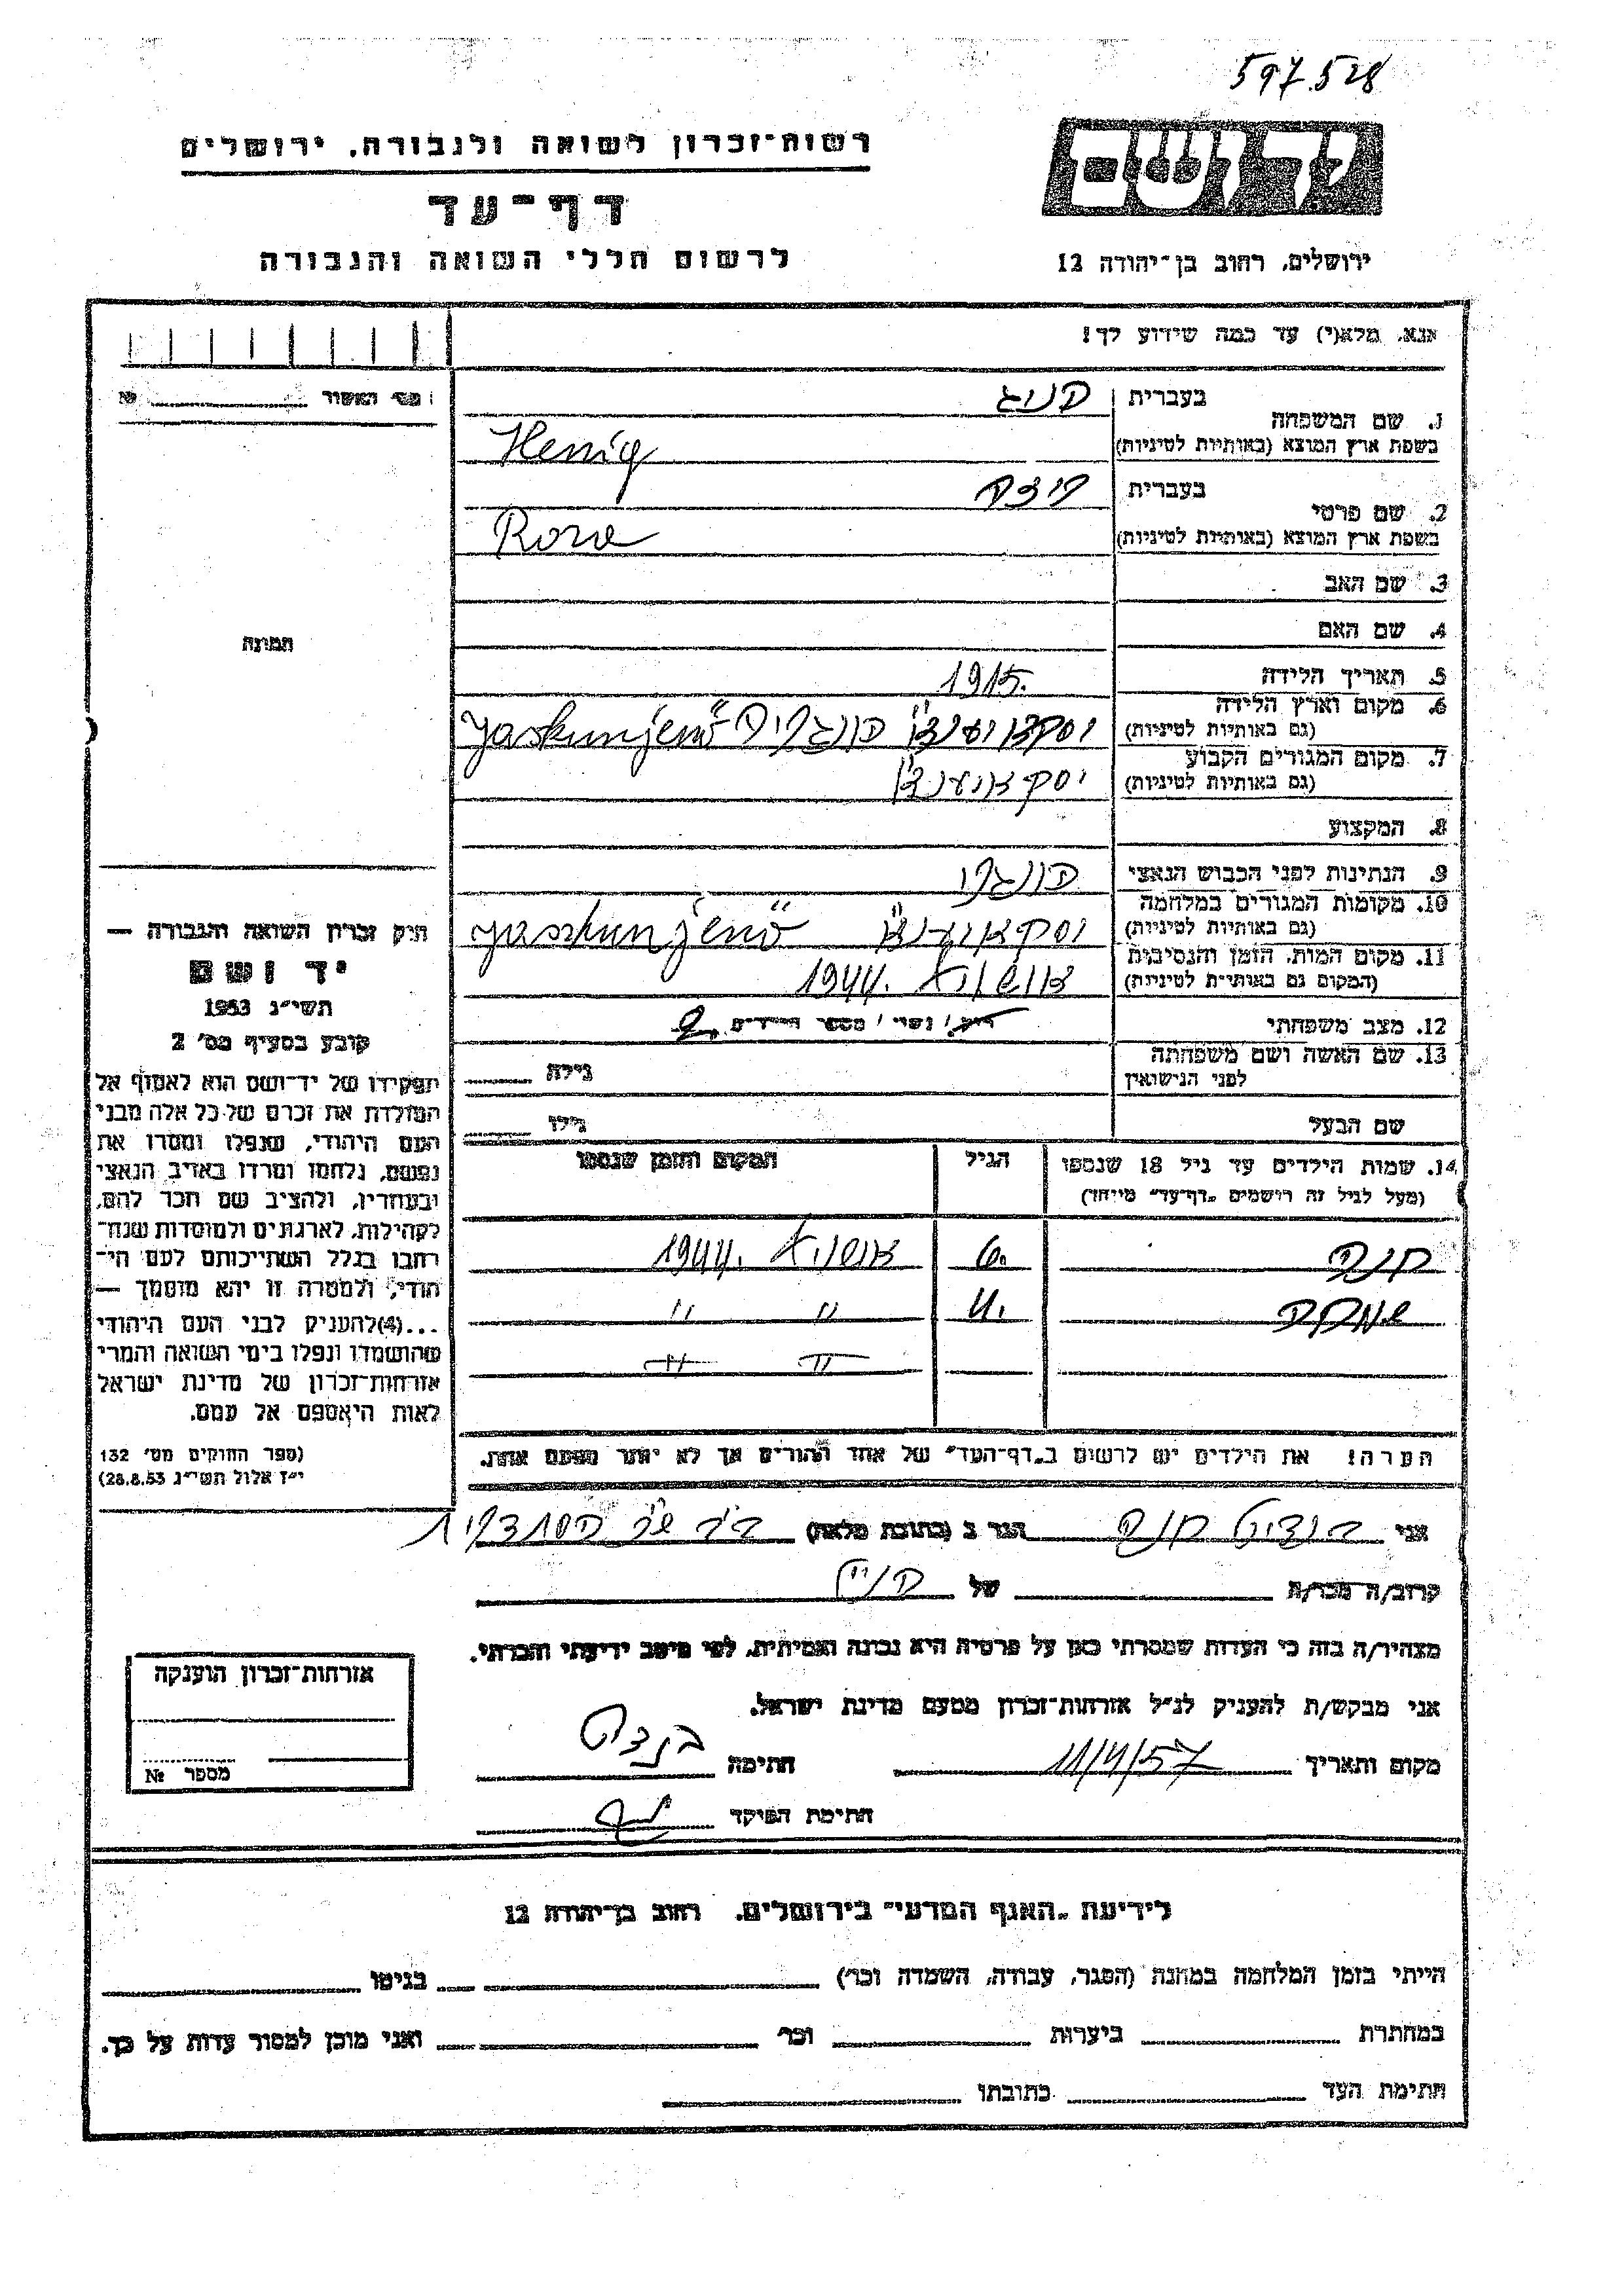 597.528
רשות־זכרון לשואה ולגבורה, ירושלים
דף־עד
לרשום חללי השואה והגבורה
ירושלים, רחוב בן־יהודה 12
אנא, מלא(י) עד כמה שידוע לך!
1. שם המשפחה
בעברית הניג
בשפת ארץ המוצא (באותיות לטיניות) Henig
2. שם פרטי
בעברית רוזה
בשפת ארץ המוצא (באותיות לטיניות) Rose
3. שם האב
4. שם האם
5. תאריך הלידה 1915.
6. מקום וארץ הלידה
(גם באותיות לטיניות) Jaskunjenö הונגריה
7. מקום המגורים הקבוע
(גם באותיות לטיניות)
8. המקצוע
9. הנתינות לפני הכבוש הנאצי הונגרי
10. מקומות המגורים במלחמה
(גם באותיות לטיניות) Jaszkunjenö
11. מקום המות, הזמן והנסיבות
(המקום גם באותיות לטיניות) אושויץ 1944.
12. מצב משפחתי רווק / נשוי / מספר הילדים 2
13. שם האשה ושם משפחתה
לפני הנישואין
גילה
שם הבעל גילו
14. שמות הילדים עד גיל 18 שנספו
(מעל לגיל זה רושמים „דף־עד" מיוחד)
הגיל
המקום והזמן שנספו
חנה 6. אושויץ 1944.
4. " "
" "
הערה! את הילדים יש לרשום ב„דף־העד" של אחד ההורים אך לא יותר מפעם אחת.
מס׳ האשור №
תמונה
חוק זכרון השואה והגבורה —
יד ושם
תשי״ג 1953
קובע בסעיף מס׳ 2
תפקידו של יד־ושם הוא לאסוף אל
המולדת את זכרם של כל אלה מבני
העם היהודי, שנפלו ומסרו את
נפשם, נלחמו ומרדו באויב הנאצי
ובעוזריו, ולהציב שם וזכר להם,
לקהילות, לארגונים ולמוסדות שנח־
רבו בגלל השתייכותם לעם הי־
הודי, ולמטרה זו יהא מוסמך —
...(4) להעניק לבני העם היהודי
שהושמדו ונפלו בימי השואה והמרי
אזרחות־זכרון של מדינת ישראל
לאות היאספם אל עמם.
(ספר החוקים מס׳ 132
י״ז אלול תשי״ג 28.8.53)
אני בנדיט חנה הגר ב (כתובת מלאה)
קרוב/ה מכר/ה של
מצהיר/ה בזה כי העדות שמסרתי כאן על פרטיה היא נכונה ואמיתית, לפי מיטב ידיעתי והכרתי.
אני מבקש/ת להעניק לנ״ל אזרחות־זכרון מטעם מדינת ישראל.
מקום ותאריך 11/4/57 חתימה בנדיט
חתימת הפוקד
אזרחות־זכרון הוענקה
מספר №
לידיעת „האגף המדעי" בירושלים, רחוב בן־יהודה 12
הייתי בזמן המלחמה במחנה (הסגר, עבודה, השמדה וכו׳) בגיטו
במחתרת ביערות וכו׳ ואני מוכן למסור עדות על כך.
חתימת העד כתובתו